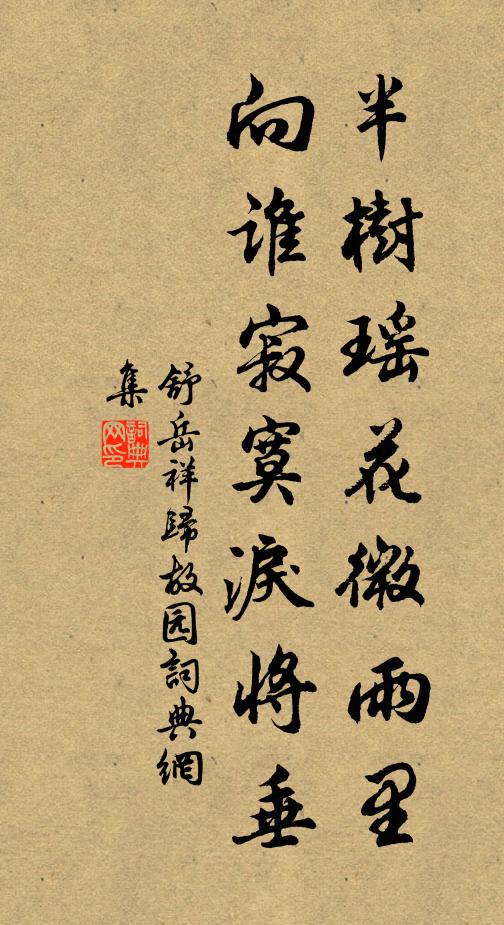 半樹瑤花微雨里
向誰寂寞淚將垂
舒岳祥歸故园詞典網
集
詞典網印